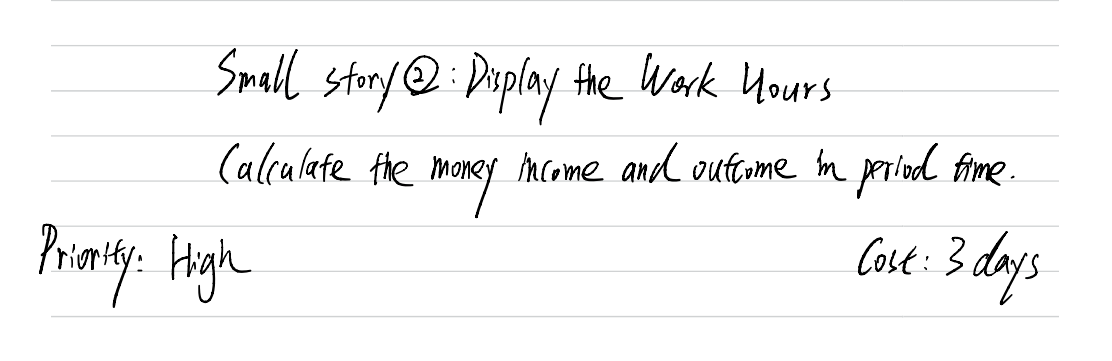 Small story ②: Display the Work Hours
Calculate the money income and outcome in period time.
Priority: High Cost: 3 days